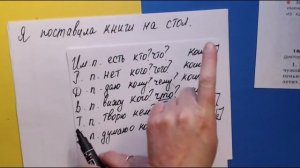 Я поставила книги на стол.
Им п. есть кто? что?
Р. п. нет кого? чего?
Д. п. даю кому? чему?
В. п. вижу кого? что?
Т. п. творю кем
п. думаю